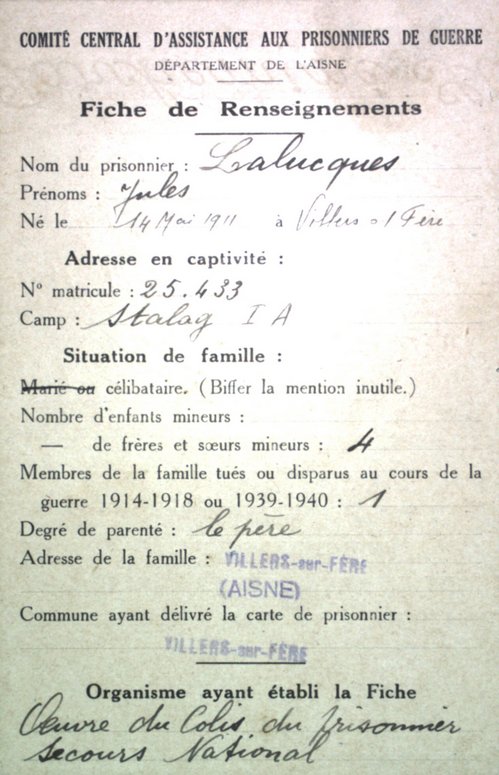 COMITÉ CENTRAL D'ASSISTANCE AUX PRISONNIERS DE GUERRE
DÉPARTEMENT DE L'AISNE
Fiche de Renseignements
Nom du prisonnier : Lalucques
Prénoms : Jules
Né le 14 Mai 1911 à Villers s/ Fère
Adresse en captivité :
N° matricule : 25.433
Camp : Stalag I A
Situation de famille :
Marié ou célibataire. (Biffer la mention inutile.)
Nombre d'enfants mineurs :
— de frères et sœurs mineurs : 4
Membres de la famille tués ou disparus au cours de la
guerre 1914-1918 ou 1939-1940 : 1
Degré de parenté : le père
Adresse de la famille : VILLERS-sur-FÈRE
(AISNE)
Commune ayant délivré la carte de prisonnier :
VILLERS-sur-FÈRE
Organisme ayant établi la Fiche
Œuvre du Colis du prisonnier
Secours National